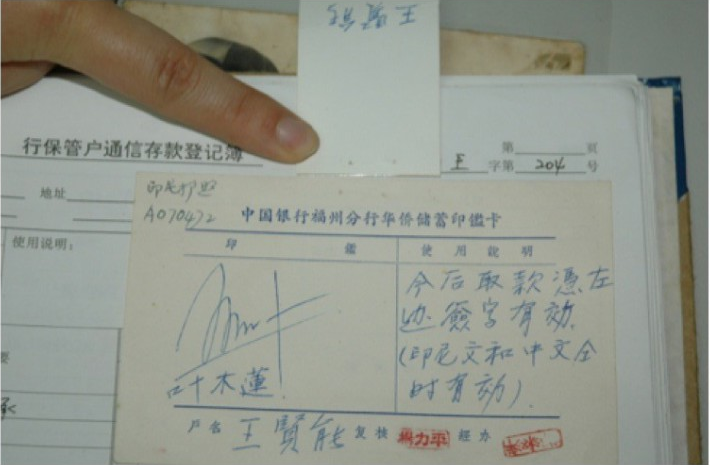 王賢能
行保管户通信存款登记簿
第 页
王 字第 204 号
地址
使用说明:
要
印尼护照
A070472
中国银行福州分行华侨储蓄印鑑卡
印 鑑
使用說明
今后取款憑左
边簽字有効
(印尼文和中文全
时有効).
叶木蓮
户名 王賢能 复核 楊力平 經办